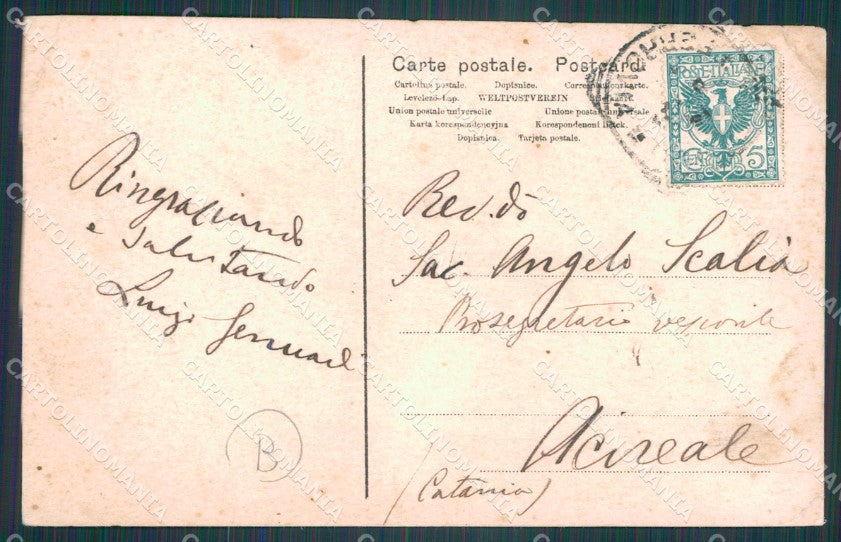 Carte postale. Postcard.
Cartolina postale. Dopisnice. Correspondenzkarte.
Levelező-Lap. WELTPOSTVEREIN
Union postale universelle Unione postale universale
Karta korespondencyjna Korespondencni listek.
Dopisnica. Tarjeta postale.
POSTE ITALIANE
CENT. 5
Ringraziando
e salutando
Luigi
B
Rev.do
Sac. Angelo Scalia
Prosegretario vescovile
Acireale
(Catania)
CARTOLINOMANIA